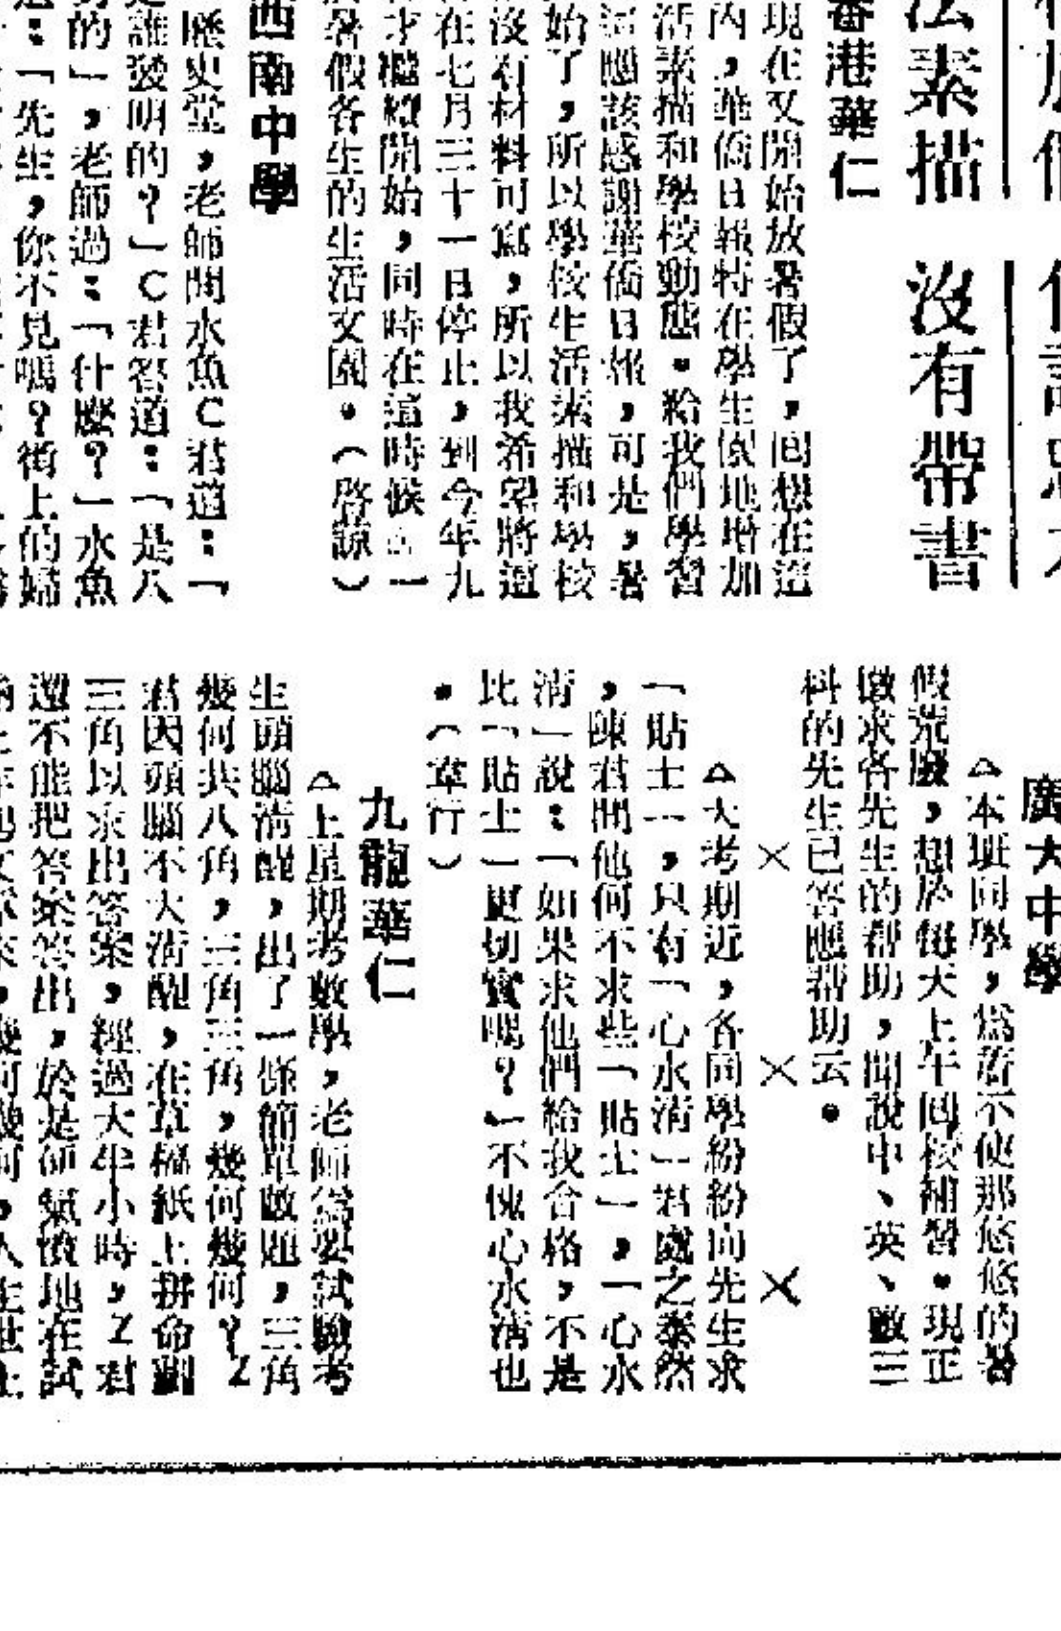 法素描　沒有帶書
香港華仁
現在又開始放暑假了，回想在這
內，華僑日報特在學生園地增加
活素描和學校動態。給我們學習
應該感謝華僑日報，可是，暑
始了，所以學校生活素描和學校
沒有材料可寫，所以我希望將這
在七月三十一日停止，到今年九
才繼續開始，同時在這時候 一
暑假各生的生活文園。（啓諒）
西南中學
歷史堂，老師問水魚Ｃ君道：「
是誰發明的？」Ｃ君答道：「是八
的」，老師過：「什麼？」水魚
：「先生，你不見嗎？街上的婦
廣大中學
△本班同學，為着不使那悠悠的暑
假荒廢，想於每天上午回校補習。現正
徵求各先生的幫助，聞說中、英、數三
科的先生已答應幫助云。
×　×　×
△大考期近，各同學紛紛向先生求
「貼士」，只有「心水清」君處之泰然
，陳君問他何不求些「貼士」，「心水
清」說：「如果求他們給我合格，不是
比「貼士」更切實嗎？」不愧心水清也
。（韋行）
九龍華仁
△上星期考數學，老師爲要試驗考
生頭腦清醒，出了一條簡單數題，三角
幾何共八角，三角三角，幾何幾何？Ｚ
君因頭腦不大清醒，在草稿紙上拼命劃
三角以求出答案，經過大半小時，Ｚ君
還不能把答案答出，於是便氣憤地在試
，幾何幾何，人生世上